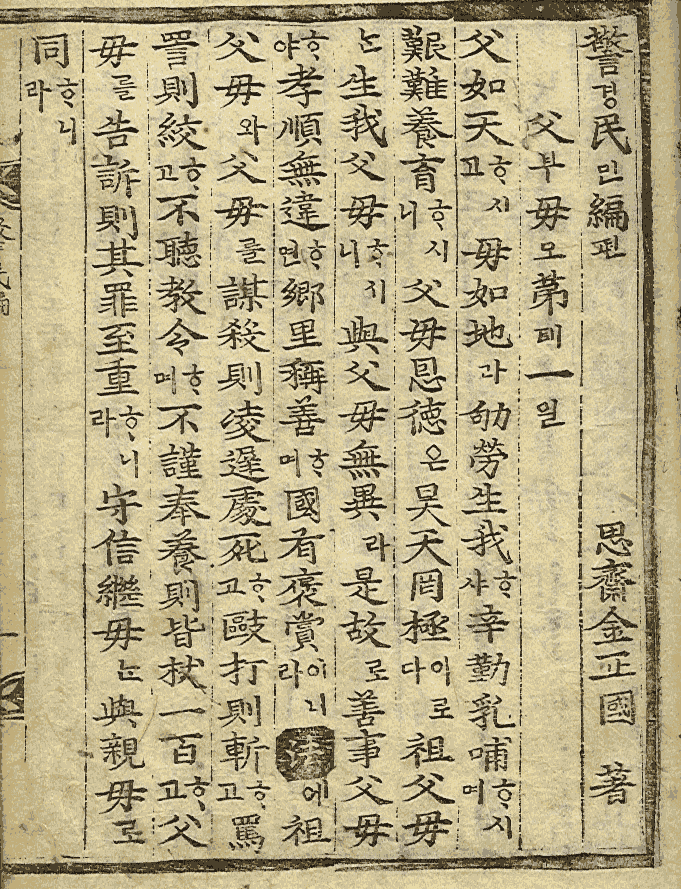 警경民민編편 思齋金正國 著
父부母모第뎨一일
父如天ᄒᆞ시고母如地라劬勞生我ᄒᆞ샤辛勤乳哺ᄒᆞ시며
艱難養育ᄒᆞ시니父母恩德은昊天罔極이로다祖父母
ᄂᆞᆫ生我父母ᄒᆞ시니與父母無異라是故로善事父母
ᄒᆞ야孝順無違ᄒᆞ면鄕里稱善ᄒᆞ며國有褒賞이니라法에祖
父母와父母를謀殺則凌遲處死ᄒᆞ고毆打則斬ᄒᆞ고罵
詈則絞ᄒᆞ고不聽教令ᄒᆞ며不謹奉養則皆杖一百ᄒᆞ고父
母를告訴則其罪至重ᄒᆞ니라守信繼母ᄂᆞᆫ與親母로
同ᄒᆞ니라